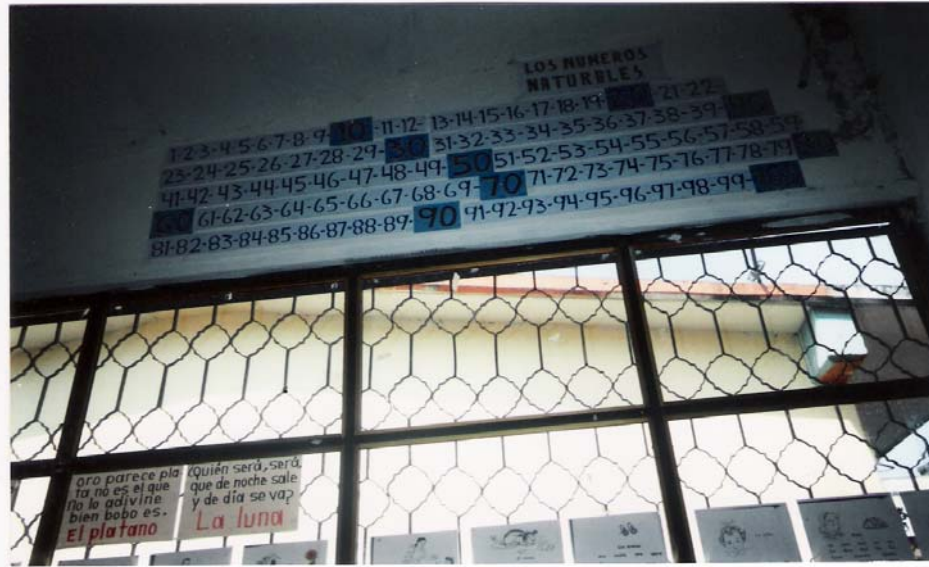 LOS NUMEROS
NATURALES
1-2-3-4-5-6-7-8-9-10-11-12-13-14-15-16-17-18-19-20-21-22-
23-24-25-26-27-28-29-30 31-32-33-34-35-36-37-38-39-40
41-42-43-44-45-46-47-48-49-50 51-52-53-54-55-56-57-58-59-
60 61-62-63-64-65-66-67-68-69-70 71-72-73-74-75-76-77-78-79-80
81-82-83-84-85-86-87-88-89-90 91-92-93-94-95-96-97-98-99-100
oro parece pla
ta no es el que
no lo adivine
bien bobo es.
El platano
¿Quién será, será,
que de noche sale
y de día se va?
La luna